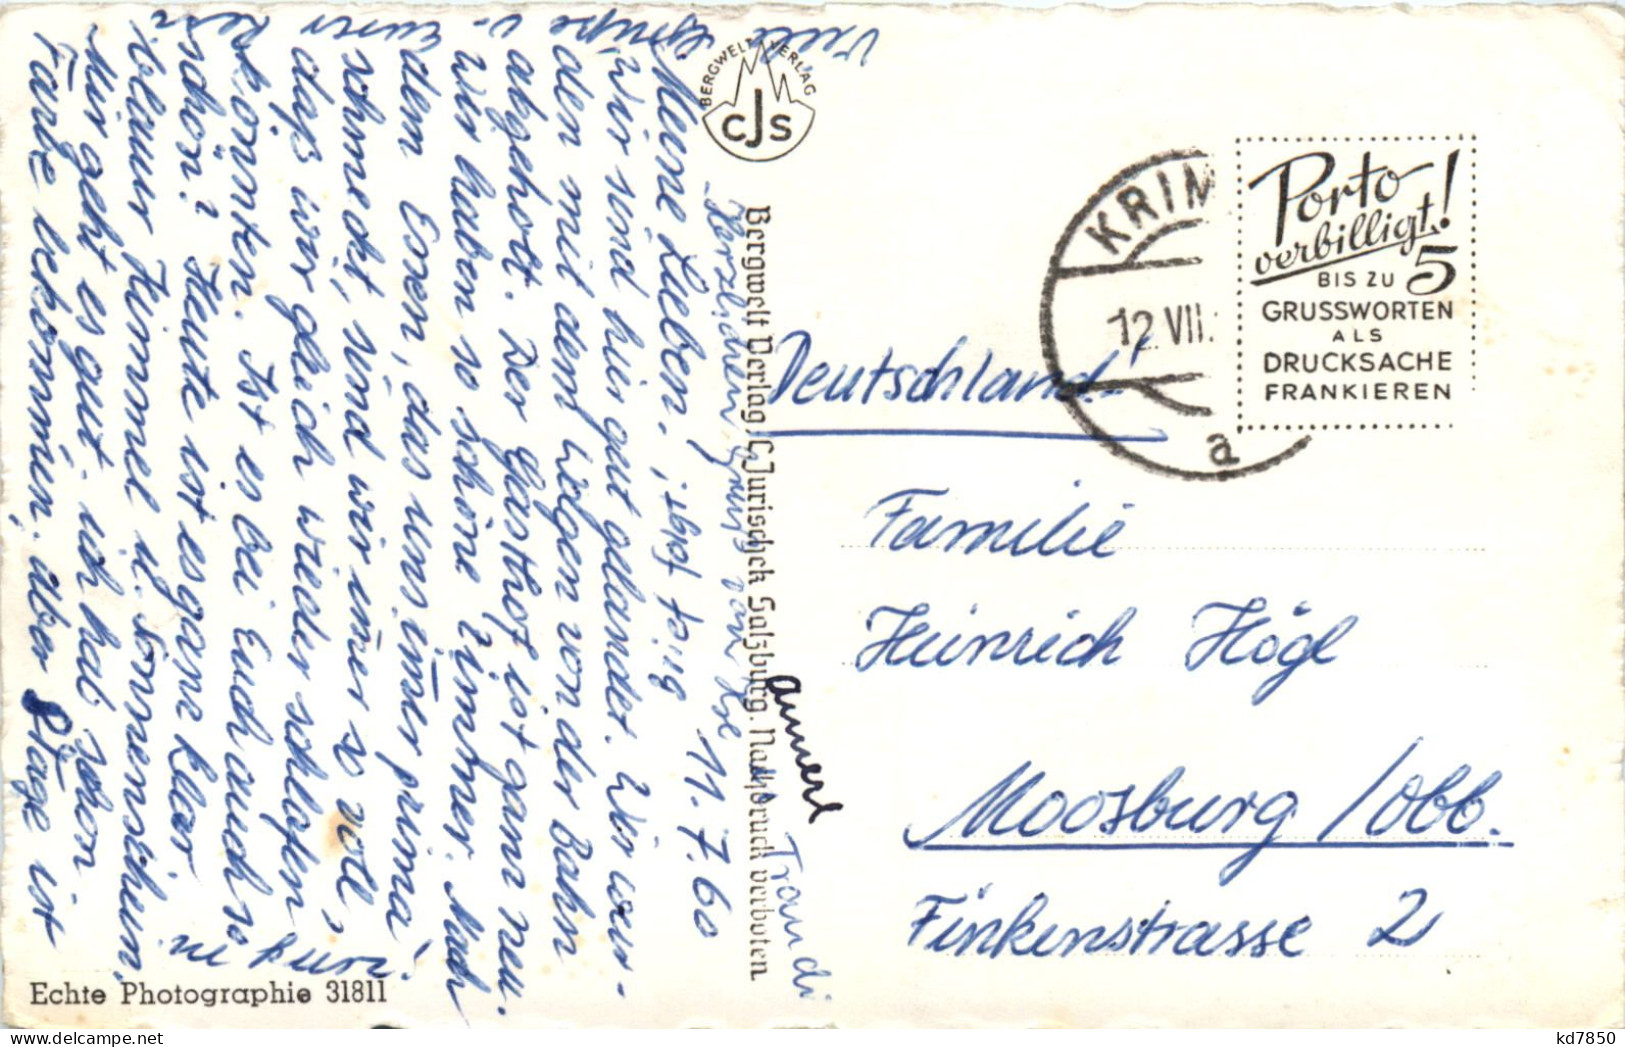 11.7.60
Meine Lieben!
Wir sind hier gut gelandet. Wir wur-
den mit dem Wagen von der Bahn
abgeholt. Der Gasthof ist ganz neu
u. wir haben so schöne Zimmer. Nach
dem Essen, das uns im̅er prima
schmeckt, sind wir im̅er so voll,
daß wir gleich wieder schlafen
könnten. Ist es bei Euch auch so
schön? Heute ist es ganz klar
blauer Himmel u. Sonnenschein.
Mir geht es gut. ich hab schon
Farbe bekommen, aber 8 Tage ist
zu kurz.
Viele
Grüße
Eurer
Herzlichen Gruß von
Annerl
Traudi
BERGWELT VERLAG
CJS
Bergwelt Verlag C. Jurischek Salzburg. Nachdruck verboten
Echte Photographie 31811
KRIM
12. VII.
a
Porto
verbilligt!
BIS ZU 5
GRUSSWORTEN
ALS
DRUCKSACHE
FRANKIEREN
Deutschland!
Familie
Heinrich Högl
Moosburg/Obb.
Finkenstrasse 2
kd7850